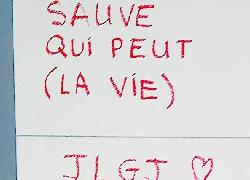 SAUVE
QUi PEUT
(LA ViE)
JLGJ ♡